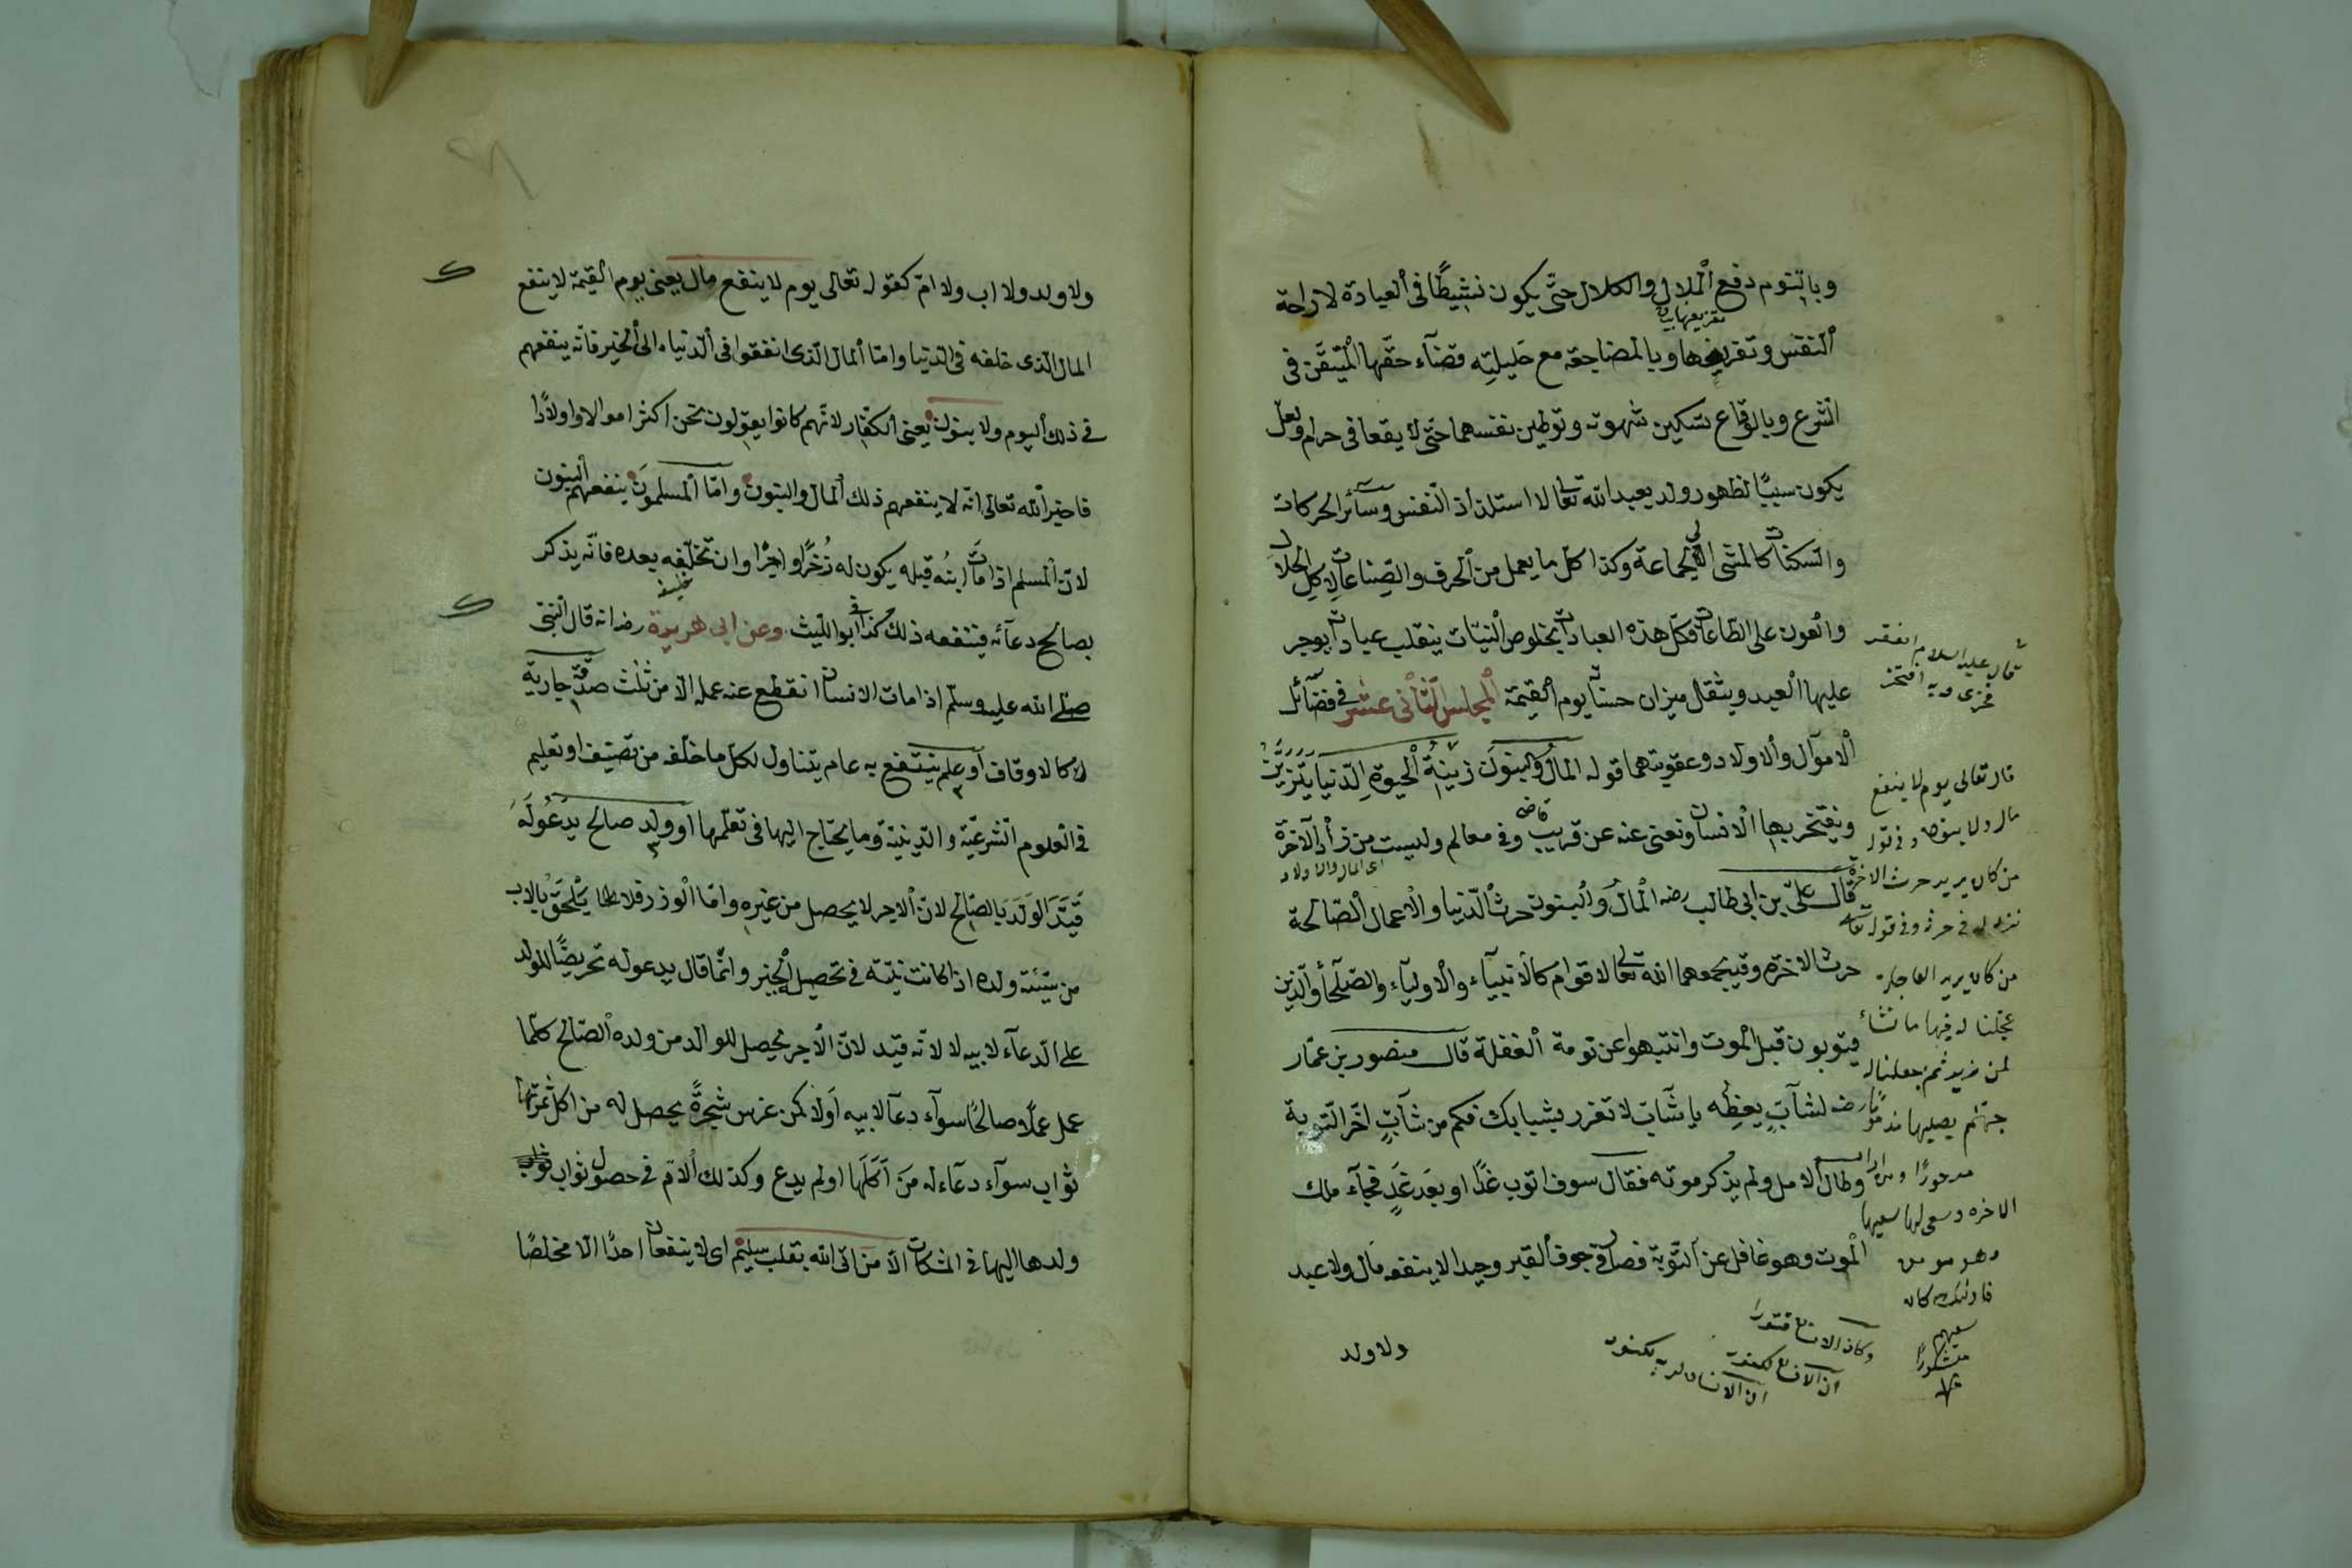 وبالنوم دفع الملال والكلال حتى يكون نشيطا فى العبادة لا راحة
النفس وتفريغها وبالمضاجعة مع حليلته قضآء حقها المتيقن فى
الشرع وبالوقاع تسكين شهوته وتوطين نفسهما حتى لا يقعا فى حرام ولعل
يكون سببا لظهور ولد يعبد الله تعالى لا استلذاذ النفس وسائر الحركات
والسكنات كالمشى الى الجماعة وكذا كل ما يعمل من الحرف والصناعات لاكل الحلال
والعون على الطاعات فكل هذه العبادات بخلوص النيات ينقلب عبادات يوجر
عليها العبد ويثقل ميزان حسناته يوم القيمة المجلس الثانى عشر فى فضآئل
الاموال والاولاد وعقوبتهما قوله المال والبنون زينة الحيوة الدنيا يتزين
ويفتخر بها الانسان وتفنى عنه عن قريب قاضى وفى معالم وليست من زاد الآخرة
اى المال والاولاد
قال على بن ابى طالب رضه المال والبنون حرث الدنيا والاعمال الصالحة
حرث الاخرة وقد يجمعهما الله تعالى لاقوام كالانبيآء والاوليآء والصلحآ والذين
يتوبون قبل الموت وانتبهوا عن نومة الغفلة قال منصور بن عمار
رضه لشآب يعظه يا شآب لا تغرر بشبابك فكم من شآب اخر التوبة
وطال الامل ولم يذكر موته فقال سوف اتوب غدا او بعد غد فجآء ملك
الموت وهو غافل عن التوبة فصار فى جوف القبر وحيدا لا ينفعه مال ولا عبد
ولا ولد
قال عليه السلام الفقر
فخرى وبه افتخر
قال تعالى يوم لا ينفع
مال ولا بنون وفى قوله
من كان يريد حرث الاخرة
نزد له فى حرثه وفى قوله تعالى
من كان يريد العاجلة
عجلنا له فيها ما نشاء
لمن نريد ثم جعلنا له
جهنم يصليها مذموما
مدحورا ومن اراد
الاخرة وسعى لها سعيها
وهو مومن
فاولئك كان
سعيهم
مشكورا
وكان الانسان قتورا
ان الانسان لكفور
ان الانسان لربه لكنود
ولا ولد ولا اب ولا ام كقوله تعالى يوم لا ينفع مال يعنى يوم القيمة لا ينفع
المال الذى خلفه فى الدنيا واما المال الذى انفقوا فى الدنياء الى الخير فانه ينفعهم
فى ذلك اليوم ولا بنون يعنى الكفار لانهم كانوا يقولون نحن اكثر اموالا واولادا
فاخبر الله تعالى انه لا ينفعهم ذلك المال والبنون واما المسلمون ينفعهم البنون
لان المسلم اذا مات ابنه قبله يكون له ذخرا واجرا وان تخلفه بعده فانه يذكر
بصالح دعآئه فينفعه ذلك كذا فى ابو الليث وعن ابى هريرة رضه انه قال النبى
صلى الله عليه وسلم اذا مات الانسان انقطع عنه عمله الا من ثلث صدقة جارية
كالاوقاف او علم ينتفع به عام يتناول لكل ما خلفه من تصنيف او تعليم
فى العلوم الشرعية والدينية وما يحتاج اليها فى تعلمها او ولد صالح يدعو له
قيد الولد بالصالح لان الاجر لا يحصل من غيره واما الوزر فلا يلحق بالاب
من سيئة ولده اذا كانت نيته فى تحصيل الخير وانما قال يدعو له تحريضا للولد
على الدعآء لابيه لا لانه قيد لان الاجر يحصل للوالد من ولده الصالح كلما
عمل عملا صالحا سوآء دعآ لابيه او لا كمن غرس شجرة يحصل له من اكل ثمرتها
ثواب سوآء دعآء له من اكلها او لم يدع وكذلك الام فى حصول ثواب
ولدها اليها فى المشكات الا من اتى الله بقلب سليم اى لا ينفعان احدا الا مخلصا